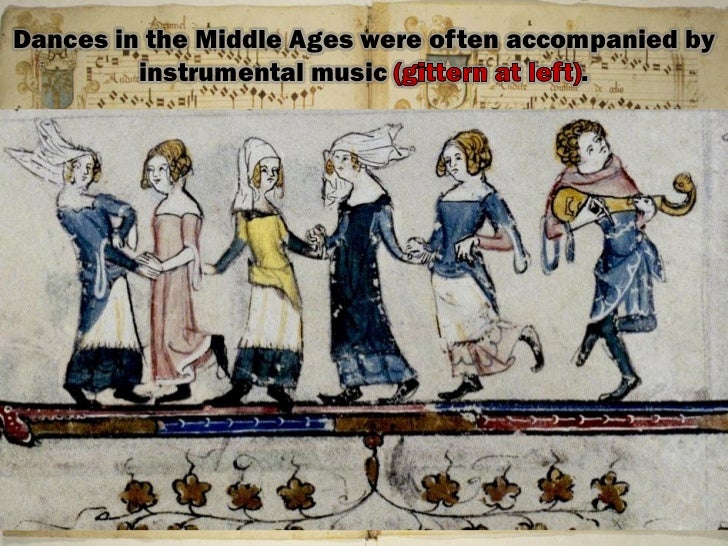 Dances in the Middle Ages were often accompanied by
instrumental music (gittern at left).